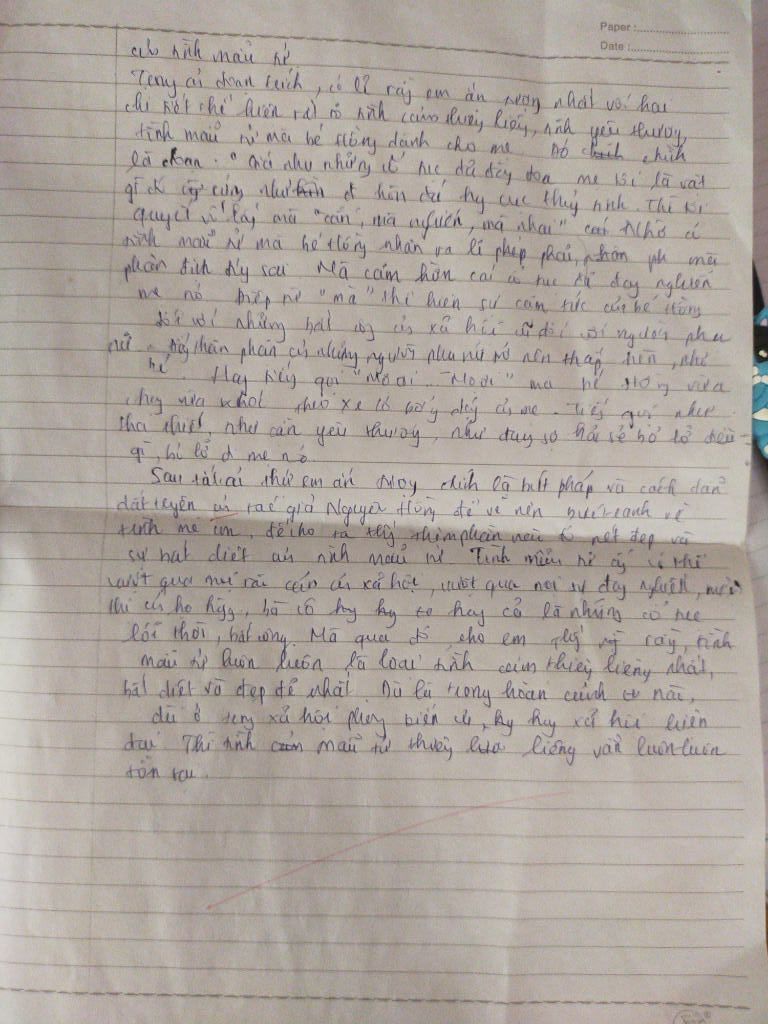 Paper :
Date :
của tình mẫu tử
Trong cả đoạn trích, có lẽ rằng em ấn tượng nhất với hai
chi tiết thể hiện rất rõ tình cảm thiêng liêng, tình yêu thương,
tình mẫu tử mà bé Hồng dành cho mẹ. Đó chính
là đoạn: "Giá như những cổ tục đã đày đọa mẹ tôi là vật
quyết vồ lấy mà "cắn, mà nghiến, mà nhai" Nhờ có
tình mẫu tử mà bé Hồng nhận ra lí phép phải, phân
phân tích đúng sai. Mà căm hờn cái cổ tục đã đày nghiến
mẹ nó. Điệp từ "mà" thể hiện sự căm tức của bé Hồng
đối với những bất công của xã hội cũ đối với người phụ
nữ. thân phận của những người phụ nữ trở nên thấp hèn,
bé Hay tiếng gọi "Mợ ơi.. Mợ ơi" mà bé Hồng vừa
chạy vừa khóc theo xe có bóng dáng của mẹ. Tiếng gọi như
tha thiết, như cần yêu thương, như đang sợ hãi sẽ bỏ lỡ điều
gì, bỏ lỡ đi mẹ nó.
Sau tất cả thứ em ấn tượng chính là bút pháp và cách dẫn
dắt truyện của tác giả Nguyên Hồng để vẽ nên bức tranh về
tình mẹ con, để cho ta thấy thêm phần nào có nét đẹp và
sự bất diệt của tình mẫu tử. Tình mẫu tử ấy có thể
vượt qua mọi rào cản của xã hội, vượt qua mọi sự đay nghiến,
thị của họ hàng, bà cô hay hay cả là những cổ tục
lỗi thời, bất công. Mà qua đó cho em thấy rằng, tình
mẫu tử luôn luôn là loại tình cảm thiêng liêng nhất,
bất diệt và đẹp đẽ nhất. Dù là trong hoàn cảnh nào,
dù ở trong xã hội phong kiến cũ, hay xã hội hiện
đại. Thì tình mẫu tử thiêng liêng vẫn luôn luôn
tồn tại.